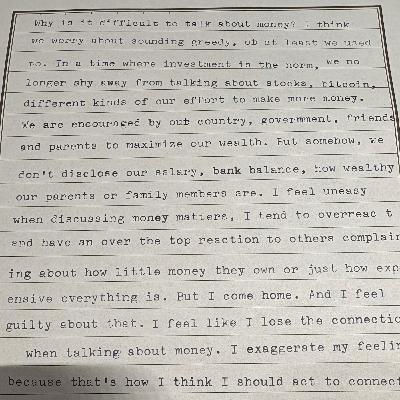 Why is it difficult to talk about money? I think
we worry about sounding greedy, ob at least we used
to. In a time where investment is the norm, we no
longer shy away from talking about stocks, bitcoin,
different kinds of our effort to make more money.
We are encouraged by out country, government, friends
and parents to maximize our wealth. But somehow, we
don't disclose our salary, bank balance, how wealthy
our parents or family members are. I feel uneasy
when discussing money matters, I tend to overreac t
and have an over the top reaction to others complain
ing about how little money they own or just how exp
ensive everything is. But I come home. And I feel
guilty about that. I feel like I lose the connectio
when talking about money. I exaggerate my feelin
because that's how I think I should act to connect